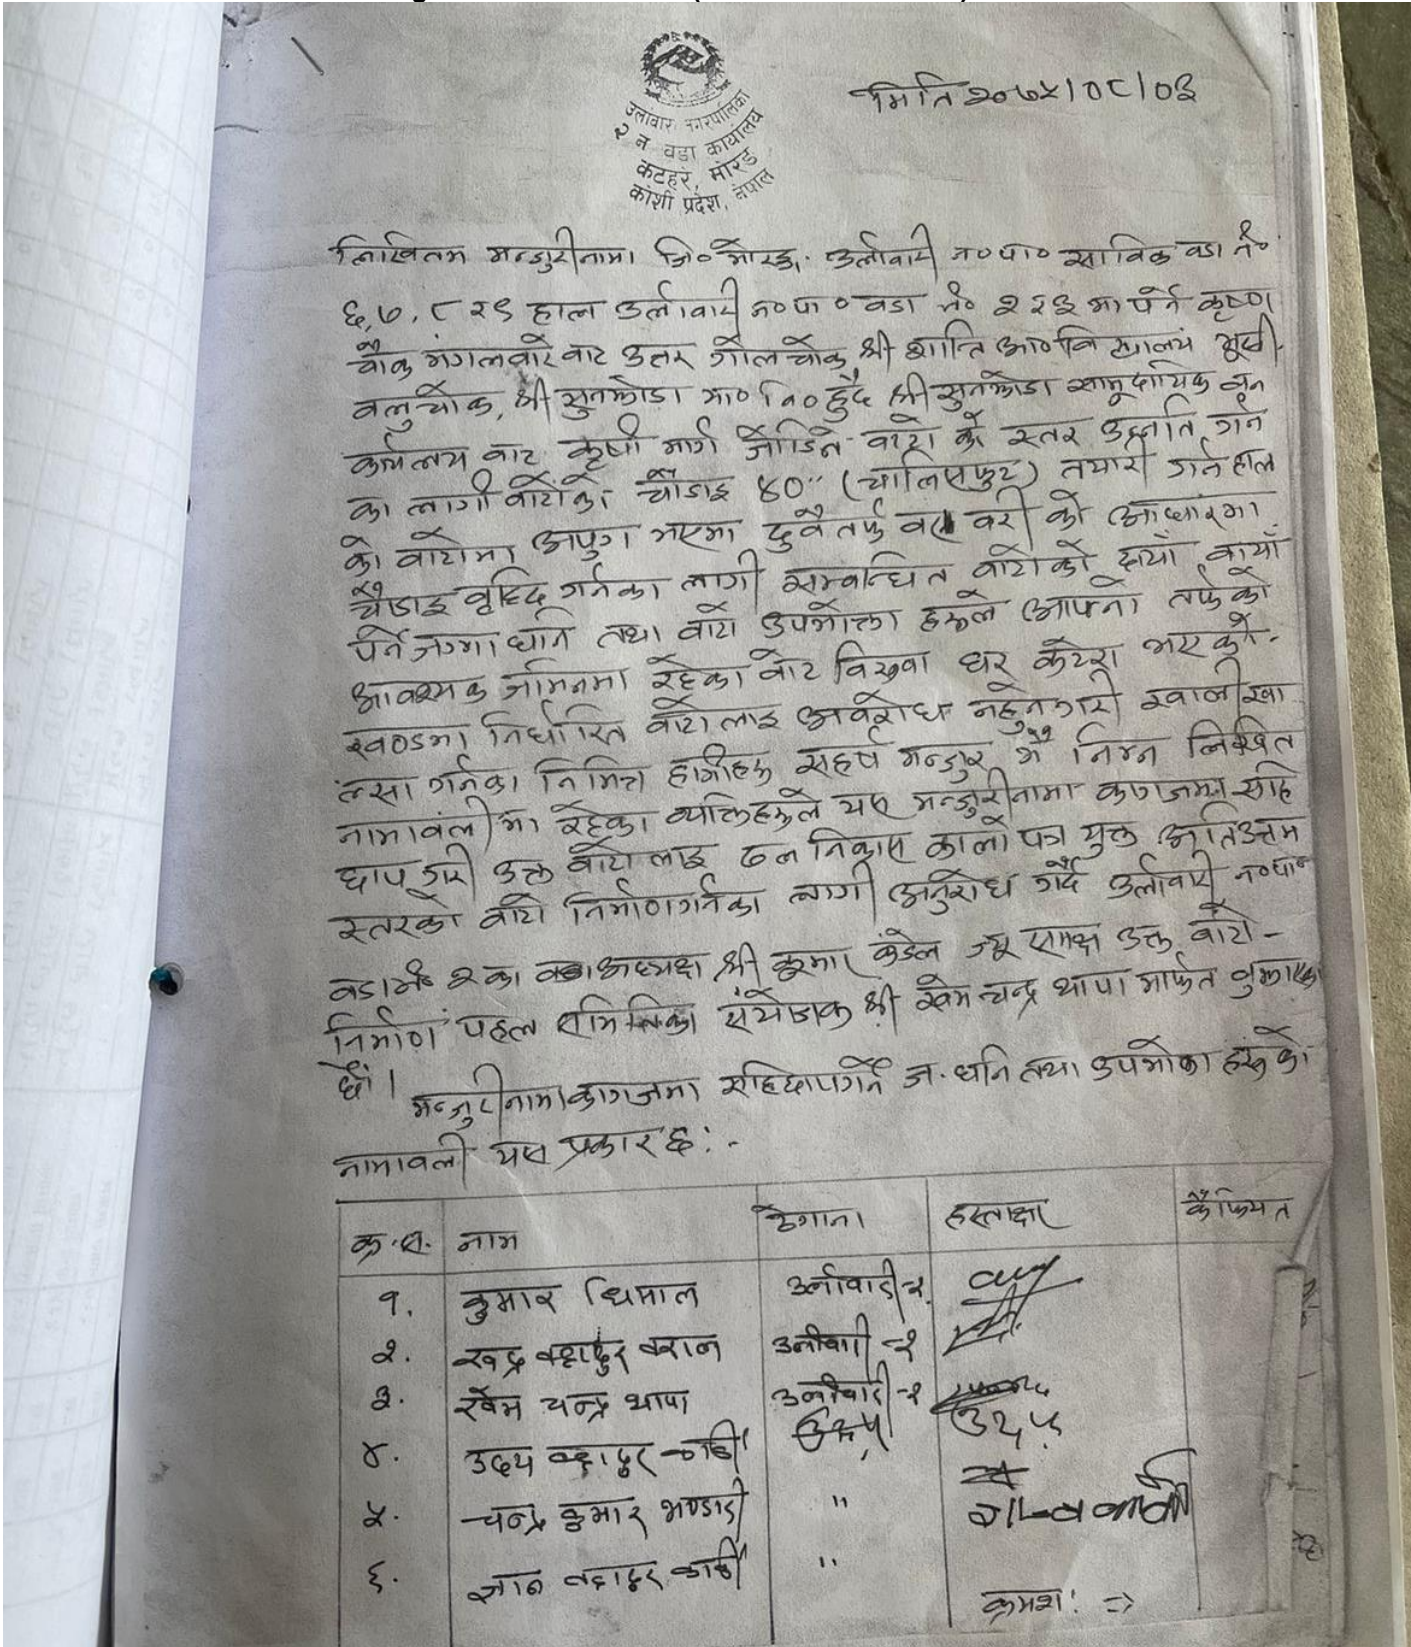 मिति २०७५।०८।०३
उर्लाबारी नगरपालिका
२ न वडा कार्यालय
कटहरे, मोरङ
कोशी प्रदेश, नेपाल
लिखितम मन्जुरीनामा जि० मोरङ उर्लावारी न०पा० साविक वडा नं०
६,७,८ र ९ हाल उर्लावारी न०पा० वडा नं० २ र ३ मा पर्ने कृष्ण
चौक मंगलवारे वाट उत्तर गोलचोक श्री शान्ति आ० वि
चोक, श्री सुनझोडा मा० वि० हुँदै श्री सुनझोडा सामूदायिक वन
कार्यलय वाट कृषी मार्ग जोडिने वाटो को स्तर उन्नति गर्न
का लागी वाटोको चौडाइ ४०" (चालिसफुट) तयारी गर्न हाल
को वाटोमा अपुग भएमा दुवै तर्फ वरावरी को आधारमा
चौडाइ वृद्धि गर्नका लागी सम्वन्धित वाटोको दायाँ वायाँ
पर्ने जग्गा धनि तथा वाटो उपभोक्ता हरूले आफ्नो तर्फको
आवश्यक जमिनमा रहेका वोट विरुवा घर कटेरा भएको
खण्डमा निर्धारित वाटो लाइ अवरोध नहुनेगरी खालीखा
ल्सा गर्नका निमित्त हामीहरु सहर्ष मन्जुर भै निम्न लिखित
नामावली मा रहेका व्यक्तिहरुले यस मन्जुरीनामा कागजमा सहि
छाप गरी उक्त वाटो लाइ ढल निकास कालो पत्र युक्त अतिउत्तम
स्तरको वाटो निर्माण गर्नका लागी अनुरोध गर्दै उर्लावारी न०पा०
वडा नं० २ का वडा अध्यक्ष श्री कुमार कंडेल ज्यू समक्ष उक्त वाटो -
निर्माण पहल समितिका संयोजक श्री खेम चन्द्र थापा मार्फत वुझाएका
छौं।
मन्जुरीनामा कागजमा सहिछापगर्ने ज. धनि तथा उपभोक्ता हरु को
नामावली यस प्रकार छ : -
क्र.स. नाम ठेगाना हस्ताक्षर कैफियत
१. कुमार धिमाल उर्लावारी-२
२. वहादुर उर्लावारी-२
३. खेम चन्द्र थापा उर्लावारी-२
४. उदय वहादुर कार्की उदय
५. चन्द्र कुमार भण्डारी "
६. ज्ञान वहादुर कार्की "
क्रमश: =>